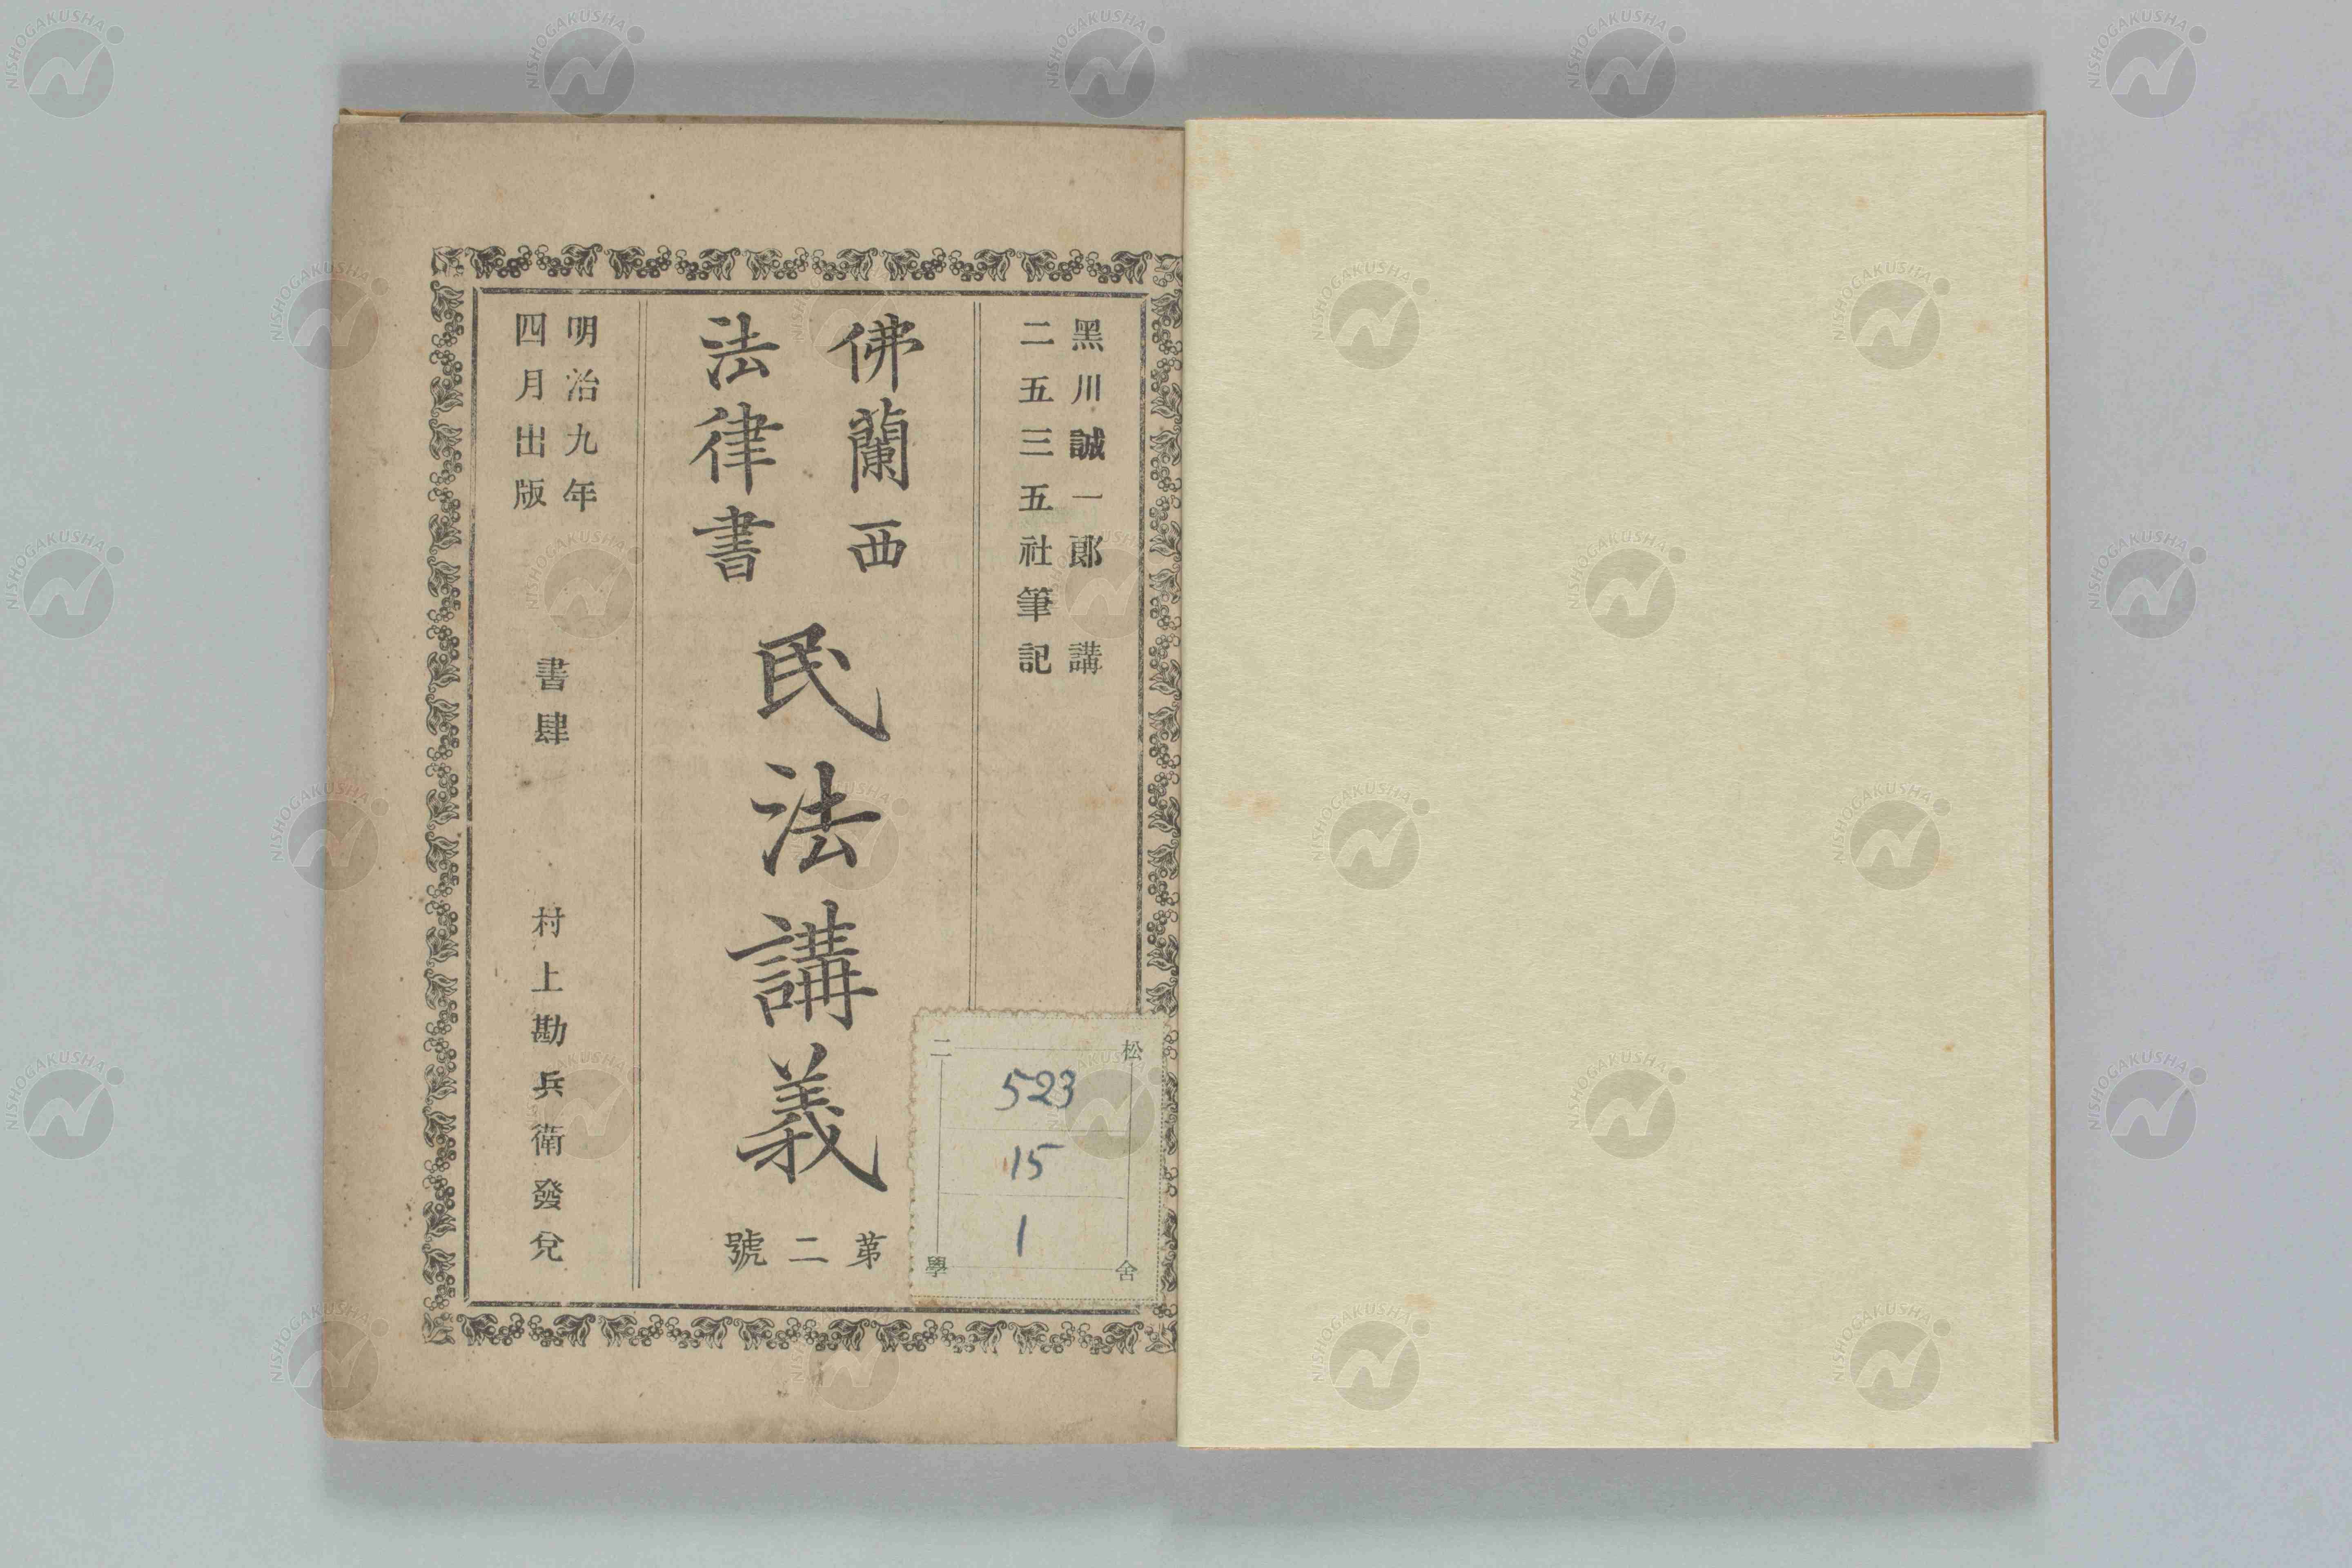 黑川誠一郞 講
二五三五社筆記
佛蘭西
法律書
民法講義
第二號
明治九年
四月出版
書肆 村上勘兵衛發兌
二松學舍
523
15
1
NISHOGAKUSHA